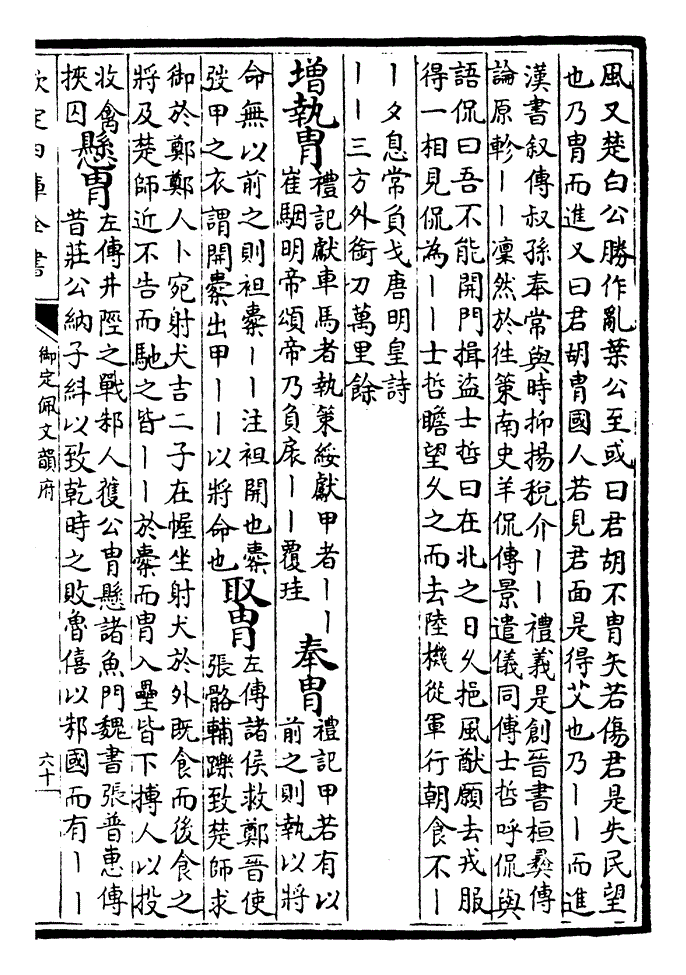 風又楚白公勝作亂葉公至或曰君胡不冑矢若傷君是失民望
也乃冑而進又曰君胡冑國人若見君面是得艾也乃丨丨而進
漢書叙傳叔孫奉常與時抑揚稅介丨丨禮義是創晉書桓彝傳
論原軫丨丨凜然於往策南史羊侃傳景遣儀同傳士哲呼侃與
語侃曰吾不能開門揖盜士哲曰在北之日久挹風猷願去戎服
得一相見侃為丨丨士哲瞻望久之而去陸機從軍行朝食不丨
丨夕息常負戈唐明皇詩
丨丨三方外銜刀萬里餘
增執冑
禮記獻車馬者執策綏獻甲者丨丨
崔駰明帝頌帝乃負扆丨丨覆珪
奉冑
禮記甲若有以
前之則執以將
命無以前之則袒櫜丨丨注袒開也櫜
弢甲之衣謂開櫜出甲丨丨以將命也
取冑
左傳諸侯救鄭晉使
張骼輔躒致楚師求
御於鄭鄭人卜宛射犬吉二子在幄坐射犬於外既食而後食之
將及楚師近不告而馳之皆丨丨於櫜而冑入壘皆下搏人以投
收禽
挾囚
懸冑
左傳井陘之戰邾人獲公冑懸諸魚門魏書張普惠傳
昔莊公納子糾以致乾時之敗魯僖以邾國而有丨丨
欽定四庫全書
御定佩文韻府
六十